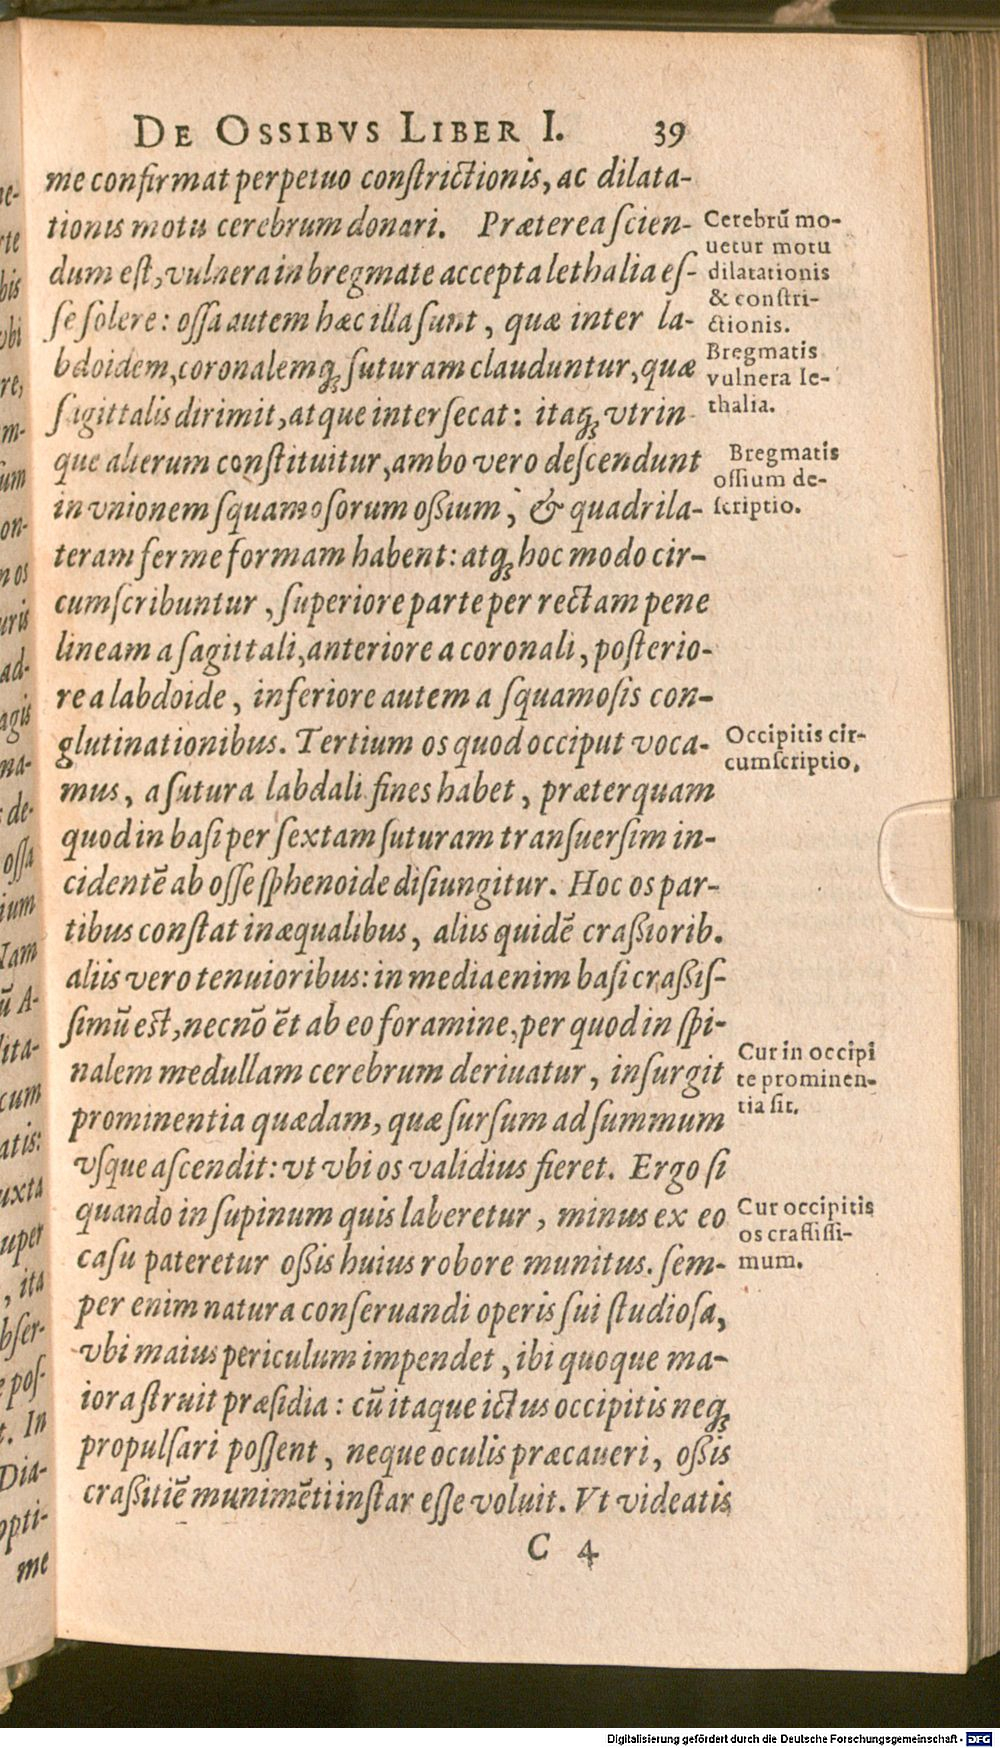 DE OSSIBVS LIBER I. 39
me confirmat perpetuo conſtrictionis, ac dilata-
tionis motu cerebrum donari. Præterea ſcien-
dum eſt, vulnera in bregmate accepta lethalia eſ-
ſe ſolere: oſſa autem hæc illa ſunt, quæ inter la-
bdoidem, coronalemq́ꝫ ſuturam clauduntur, quæ
ſagittalis dirimit, atque interſecat: itaqꝫ vtrin
que alterum conſtituitur, ambo vero deſcendunt
in vnionem ſquamoſorum oßium, & quadrila-
teram ferme formam habent: atqꝫ hoc modo cir-
cumſcribuntur, ſuperiore parte per rectam pene
lineam a ſagittali, anteriore a coronali, poſterio-
re a labdoide, inferiore autem a ſquamoſis con-
glutinationibus. Tertium os quod occiput voca-
mus, a ſutura labdali fines habet, præterquam
quod in baſi per ſextam ſuturam tranſuerſim in-
cidentē ab oſſe ſphenoide diſiungitur. Hoc os par-
tibus conſtat inæqualibus, aliis quidē craßiorib.
aliis vero tenuioribus: in media enim baſi craßiſ-
ſimū est, necnō ēt ab eo foramine, per quod in ſpi-
nalem medullam cerebrum deriuatur, inſurgit
prominentia quædam, quæ ſurſum ad ſummum
vſque aſcendit: vt vbi os validius fieret. Ergo ſi
quando in ſupinum quis laberetur, minus ex eo
caſu pateretur oßis huius robore munitus. ſem-
per enim natura conſeruandi operis ſui ſtudioſa,
vbi maius periculum impendet, ibi quoque ma-
iora ſtruit præſidia: cū itaque ictus occipitis neqꝫ
propulſari poſſent, neque oculis præcaueri, oßis
craßitiē munimēti inſtar eſſe voluit. Vt videatis
C 4
Cerebrū mo-
uetur motu
dilatationis
& conſtri-
ctionis.
Bregmatis
vulnera le-
thalia.
Bregmatis
oſſium de-
ſcriptio.
Occipitis cir-
cumſcriptio,
Cur in occipi
te prominen-
tia ſit.
Cur occipitis
os craſſiſſi-
mum.
te
bis
vbi
re,
m-
ſum
on-
n os
uris
ad-
agis
na-
de-
oſſa
ium
Nam
ū A-
lita-
cum
atis:
uxta
uper
, ita
bſer-
poſ-
t. In
Dia-
opti-
me
Digitalisierung gefördert durch die Deutsche Forschungsgemeinschaft - DFG